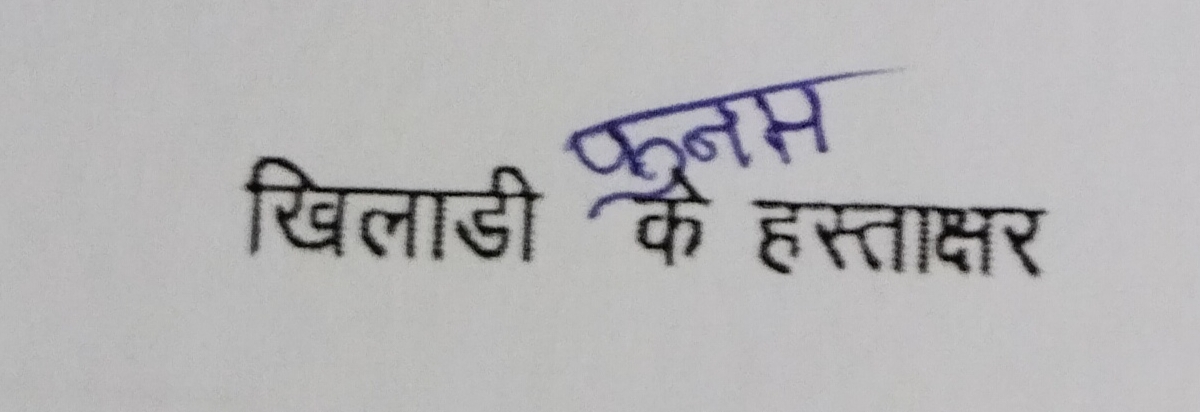 कुनम
खिलाडी के हस्ताक्षर